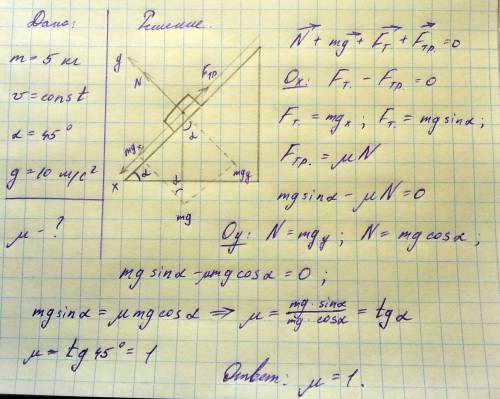 Дано:
m = 5 кг
v = const
α = 45°
g = 10 м/с²
μ - ?
Решение.
y
N
Fтр.
mgₓ
α
x
α
α
mgy
mg
N⃗ + mg⃗ + F⃗т. + F⃗тр. = 0
Ox: Fт. - Fтр. = 0
Fт. = mgₓ ; Fт. = mg sinα ;
Fтр. = μN
mg sinα - μN = 0
Oy: N = mgy ; N = mg cosα ;
mg sinα - μmg cosα = 0 ;
mg sinα = μ mg cosα ⇒ μ = mg · sinα / mg · cosα = tgα
μ = tg 45° = 1
Ответ: μ = 1.